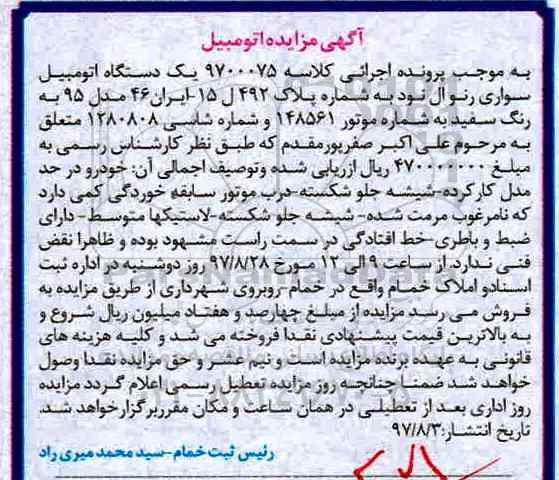 آگهی مزایده اتومبیل
به موجب پرونده اجرائی کلاسه ۹۷۰۰۰۷۵ یک دستگاه اتومبیل
سواری رنو ال نود به شماره پلاک ۴۹۲ ل ۱۵-ایران۴۶ مدل ۹۵ به
رنگ سفید به شماره موتور ۱۴۸۵۶۱ و شماره شاسی ۱۲۸۰۸۰۸ متعلق
به مرحوم علی اکبر صفرپورمقدم که طبق نظر کارشناس رسمی به
مبلغ ۴۷۰۰۰۰۰۰۰ ریال ارزیابی شده وتوصیف اجمالی آن: خودرو در حد
مدل کارکرده-شیشه جلو شکسته-درب موتور سابقه خوردگی کمی دارد
که نامرغوب مرمت شده- شیشه جلو شکسته-لاستیکها متوسط- دارای
ضبط و باطری-خط افتادگی در سمت راست مشهود بوده و ظاهرا نقض
فنی ندارد. از ساعت ۹ الی ۱۲ مورخ ۹۷/۸/۲۸ روز دوشنبه در اداره ثبت
اسنادو املاک خمام واقع در خمام-روبروی شهرداری از طریق مزایده به
فروش می رسد مزایده از مبلغ چهارصد و هفتاد میلیون ریال شروع و
به بالاترین قیمت پیشنهادی نقدا فروخته می شد و کلیه هزینه های
قانونی به عهده برنده مزایده است و نیم عشر و حق مزایده نقدا وصول
خواهد شد ضمنا چنانچه روز مزایده تعطیل رسمی اعلام گردد مزایده
روز اداری بعد از تعطیلی در همان ساعت و مکان مقرربرگزارخواهد شد.
تاریخ انتشار:۹۷/۸/۳
رئیس ثبت خمام-سید محمد میری راد